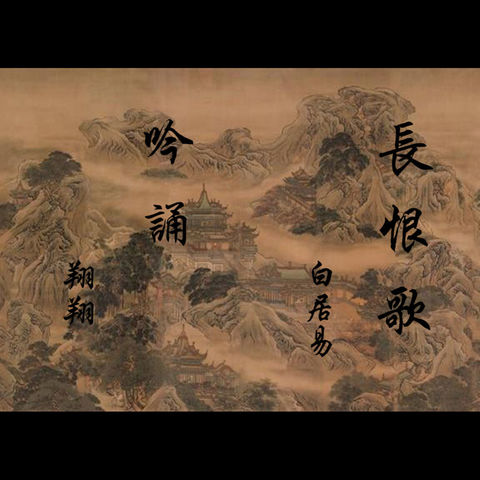 長恨歌
白居易
吟誦
翔翔